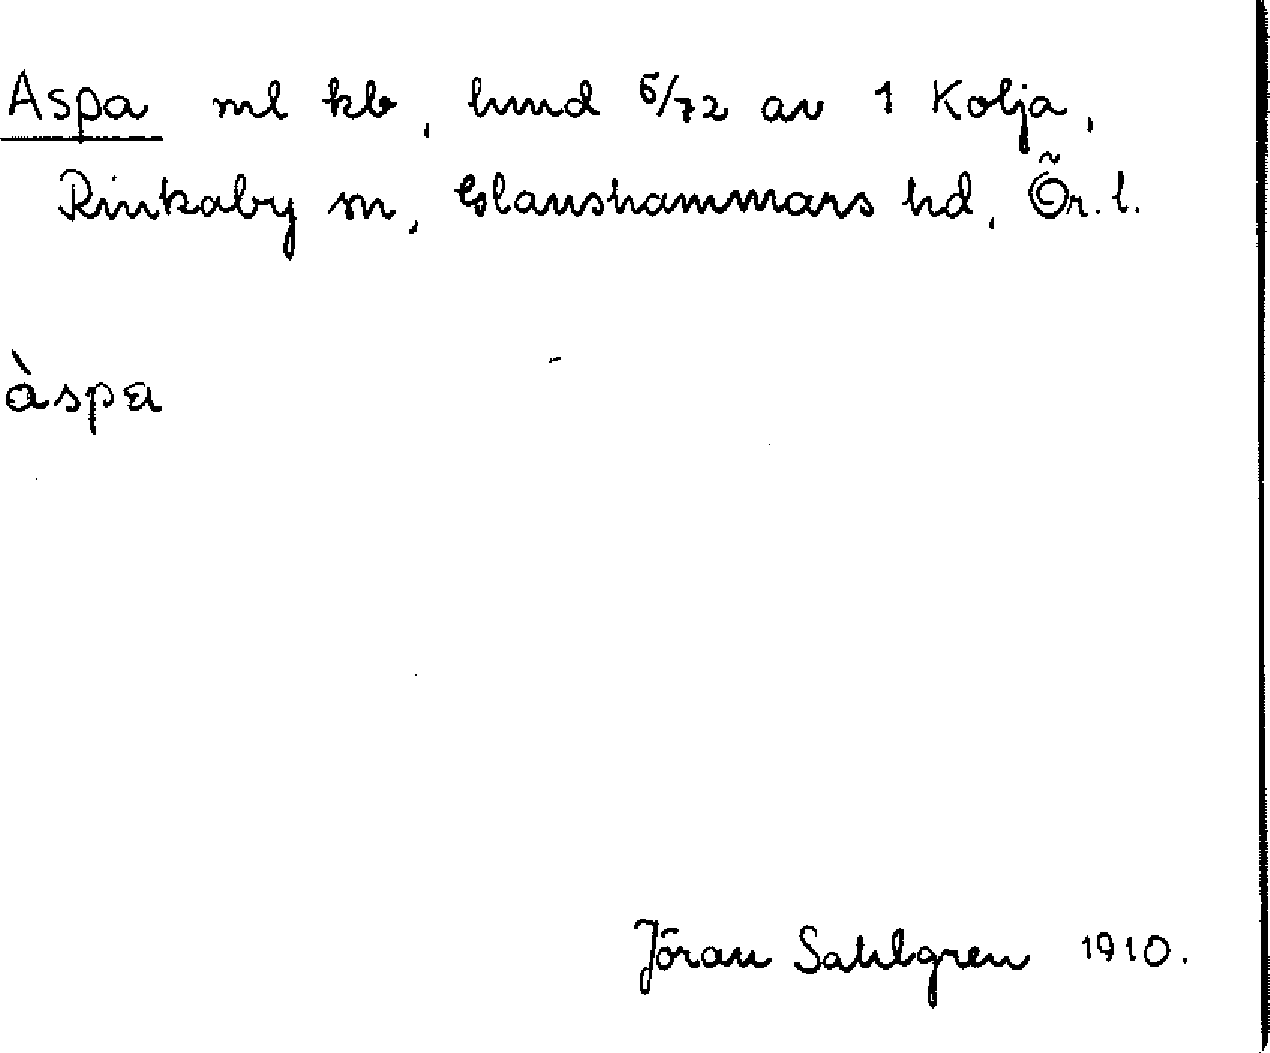 Aspa ml kb, hmd 5/72 av 1 Kolja,
Rinkaby sn, Glanshammars hd, Ör. l.
àspa
Jöran Sahlgren 1910.